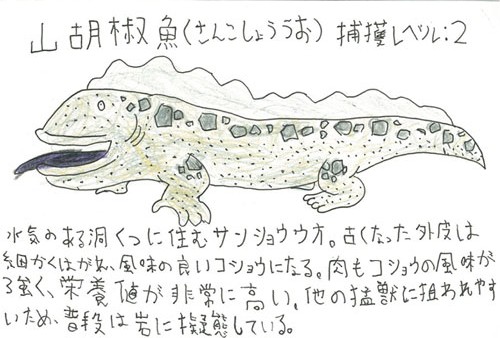 山胡椒魚(さんこしょううお) 捕獲レベル:2
水気のある洞くつに住むサンショウウオ。古くなった外皮は
細かくはがれ、風味の良いコショウになる。肉もコショウの風味が
強く、栄養値が非常に高い。他の猛獣に狙われやす
いため、普段は岩に擬態している。